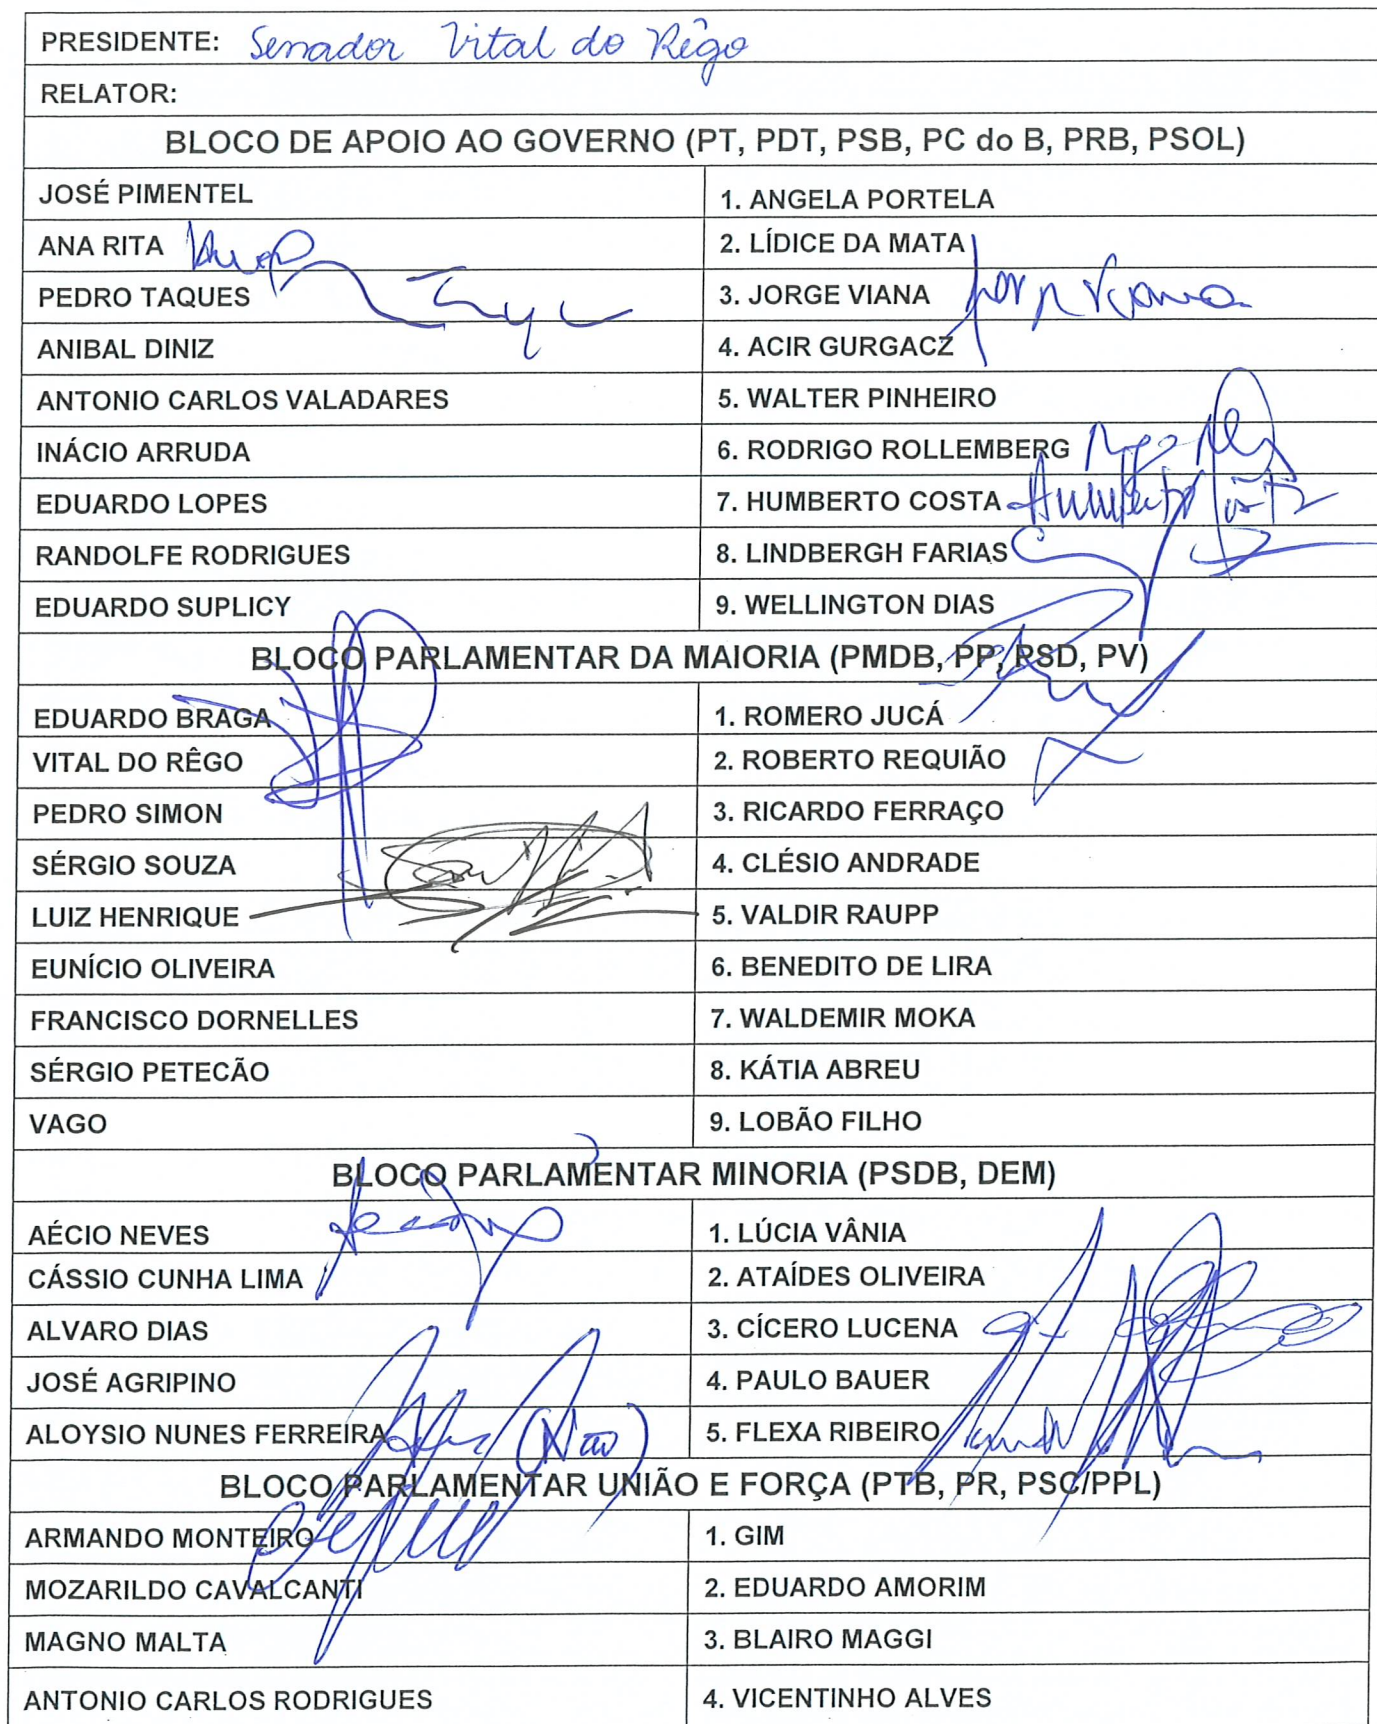 PRESIDENTE: Senador Vital do Rêgo
RELATOR:
BLOCO DE APOIO AO GOVERNO (PT, PDT, PSB, PC do B, PRB, PSOL)
JOSÉ PIMENTEL 1. ANGELA PORTELA
ANA RITA 2. LÍDICE DA MATA
PEDRO TAQUES 3. JORGE VIANA
ANIBAL DINIZ 4. ACIR GURGACZ
ANTONIO CARLOS VALADARES 5. WALTER PINHEIRO
INÁCIO ARRUDA 6. RODRIGO ROLLEMBERG
EDUARDO LOPES 7. HUMBERTO COSTA Humberto Costa
RANDOLFE RODRIGUES 8. LINDBERGH FARIAS
EDUARDO SUPLICY 9. WELLINGTON DIAS
BLOCO PARLAMENTAR DA MAIORIA (PMDB, PP, PSD, PV)
EDUARDO BRAGA 1. ROMERO JUCÁ
VITAL DO RÊGO 2. ROBERTO REQUIÃO
PEDRO SIMON 3. RICARDO FERRAÇO
SÉRGIO SOUZA 4. CLÉSIO ANDRADE
LUIZ HENRIQUE 5. VALDIR RAUPP
EUNÍCIO OLIVEIRA 6. BENEDITO DE LIRA
FRANCISCO DORNELLES 7. WALDEMIR MOKA
SÉRGIO PETECÃO 8. KÁTIA ABREU
VAGO 9. LOBÃO FILHO
BLOCO PARLAMENTAR MINORIA (PSDB, DEM)
AÉCIO NEVES 1. LÚCIA VÂNIA
CÁSSIO CUNHA LIMA 2. ATAÍDES OLIVEIRA
ALVARO DIAS 3. CÍCERO LUCENA
JOSÉ AGRIPINO 4. PAULO BAUER
ALOYSIO NUNES FERREIRA (Não) 5. FLEXA RIBEIRO
BLOCO PARLAMENTAR UNIÃO E FORÇA (PTB, PR, PSC/PPL)
ARMANDO MONTEIRO 1. GIM
MOZARILDO CAVALCANTI 2. EDUARDO AMORIM
MAGNO MALTA 3. BLAIRO MAGGI
ANTONIO CARLOS RODRIGUES 4. VICENTINHO ALVES